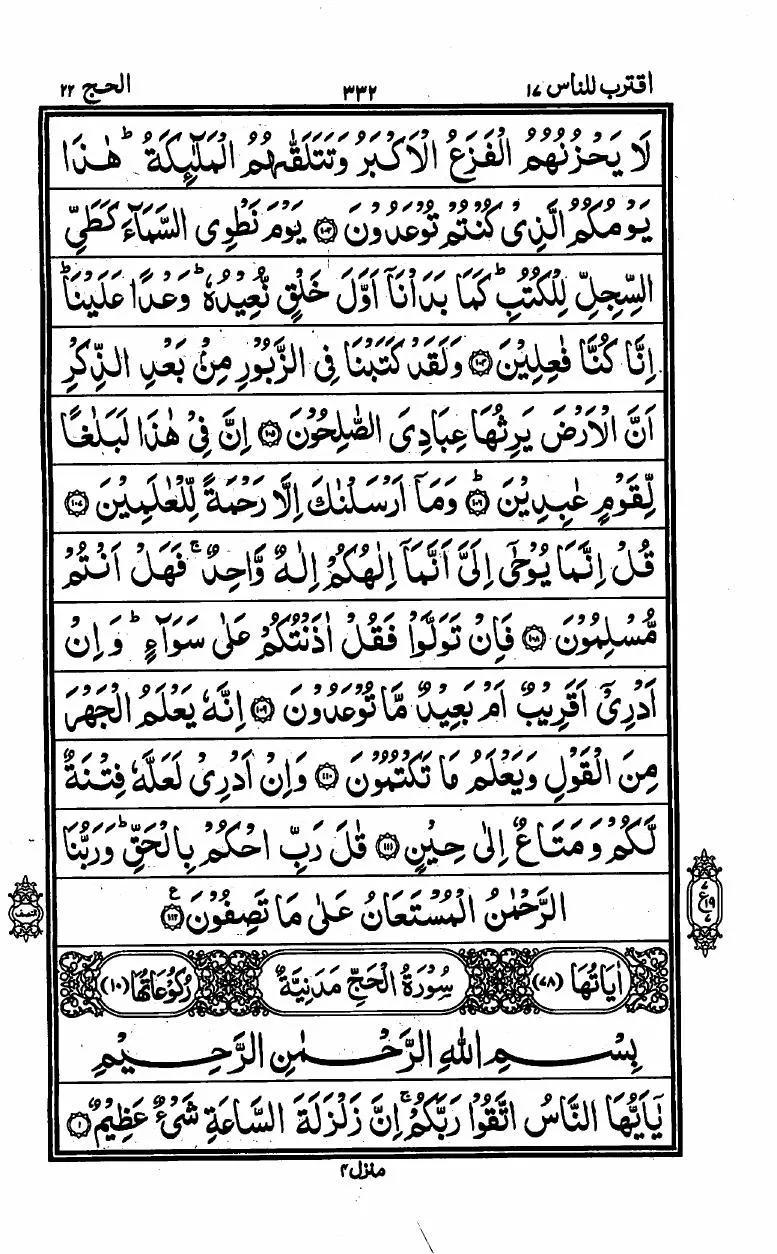 اقترب للناس ١٧ ٣٣٢ الحج ٢٢
لَا يَحْزُنُهُمُ الْفَزَعُ الْاَكْبَرُ وَتَتَلَقّٰىهُمُ الْمَلٰٓئِكَةُ ؕ هٰذَا
يَوْمُكُمُ الَّذِىْ كُنْتُمْ تُوْعَدُوْنَ ۝١٠٣ يَوْمَ نَطْوِى السَّمَآءَ كَطَىِّ
السِّجِلِّ لِلْكُتُبِ ؕ كَمَا بَدَاْنَاۤ اَوَّلَ خَلْقٍ نُّعِيْدُهٗ ؕ وَعْدًا عَلَيْنَا ؕ
اِنَّا كُنَّا فٰعِلِيْنَ ۝١٠٤ وَلَقَدْ كَتَبْنَا فِى الزَّبُوْرِ مِنْۢ بَعْدِ الذِّكْرِ
اَنَّ الْاَرْضَ يَرِثُهَا عِبَادِىَ الصّٰلِحُوْنَ ۝١٠٥ اِنَّ فِىْ هٰذَا لَبَلٰغًا
لِّقَوْمٍ عٰبِدِيْنَ ؕ ۝١٠٦ وَمَاۤ اَرْسَلْنٰكَ اِلَّا رَحْمَةً لِّلْعٰلَمِيْنَ ۝١٠٧
قُلْ اِنَّمَا يُوْحٰۤى اِلَىَّ اَنَّمَاۤ اِلٰهُكُمْ اِلٰهٌ وَّاحِدٌ ۚ فَهَلْ اَنْتُمْ
مُّسْلِمُوْنَ ۝١٠٨ فَاِنْ تَوَلَّوْا فَقُلْ اٰذَنْتُكُمْ عَلٰى سَوَآءٍ ؕ وَاِنْ
اَدْرِىْۤ اَقَرِيْبٌ اَمْ بَعِيْدٌ مَّا تُوْعَدُوْنَ ۝١٠٩ اِنَّهٗ يَعْلَمُ الْجَهْرَ
مِنَ الْقَوْلِ وَيَعْلَمُ مَا تَكْتُمُوْنَ ۝١١٠ وَاِنْ اَدْرِىْ لَعَلَّهٗ فِتْنَةٌ
لَّكُمْ وَمَتَاعٌ اِلٰى حِيْنٍ ۝١١١ قٰلَ رَبِّ احْكُمْ بِالْحَقِّ ؕ وَرَبُّنَا
الرَّحْمٰنُ الْمُسْتَعَانُ عَلٰى مَا تَصِفُوْنَ ۝١١٢ ع
ع ٧ ١٩ ٧
النصف
اٰيَاتُهَا (٧٨) سُوْرَةُ الْحَجِّ مَدَنِيَّةٌ رُكُوْعَاتُهَا (١٠)
بِسْمِ اللهِ الرَّحْمٰنِ الرَّحِيْمِ
يٰۤاَيُّهَا النَّاسُ اتَّقُوْا رَبَّكُمْ ۚ اِنَّ زَلْزَلَةَ السَّاعَةِ شَىْءٌ عَظِيْمٌ ۝١
منزل ٤